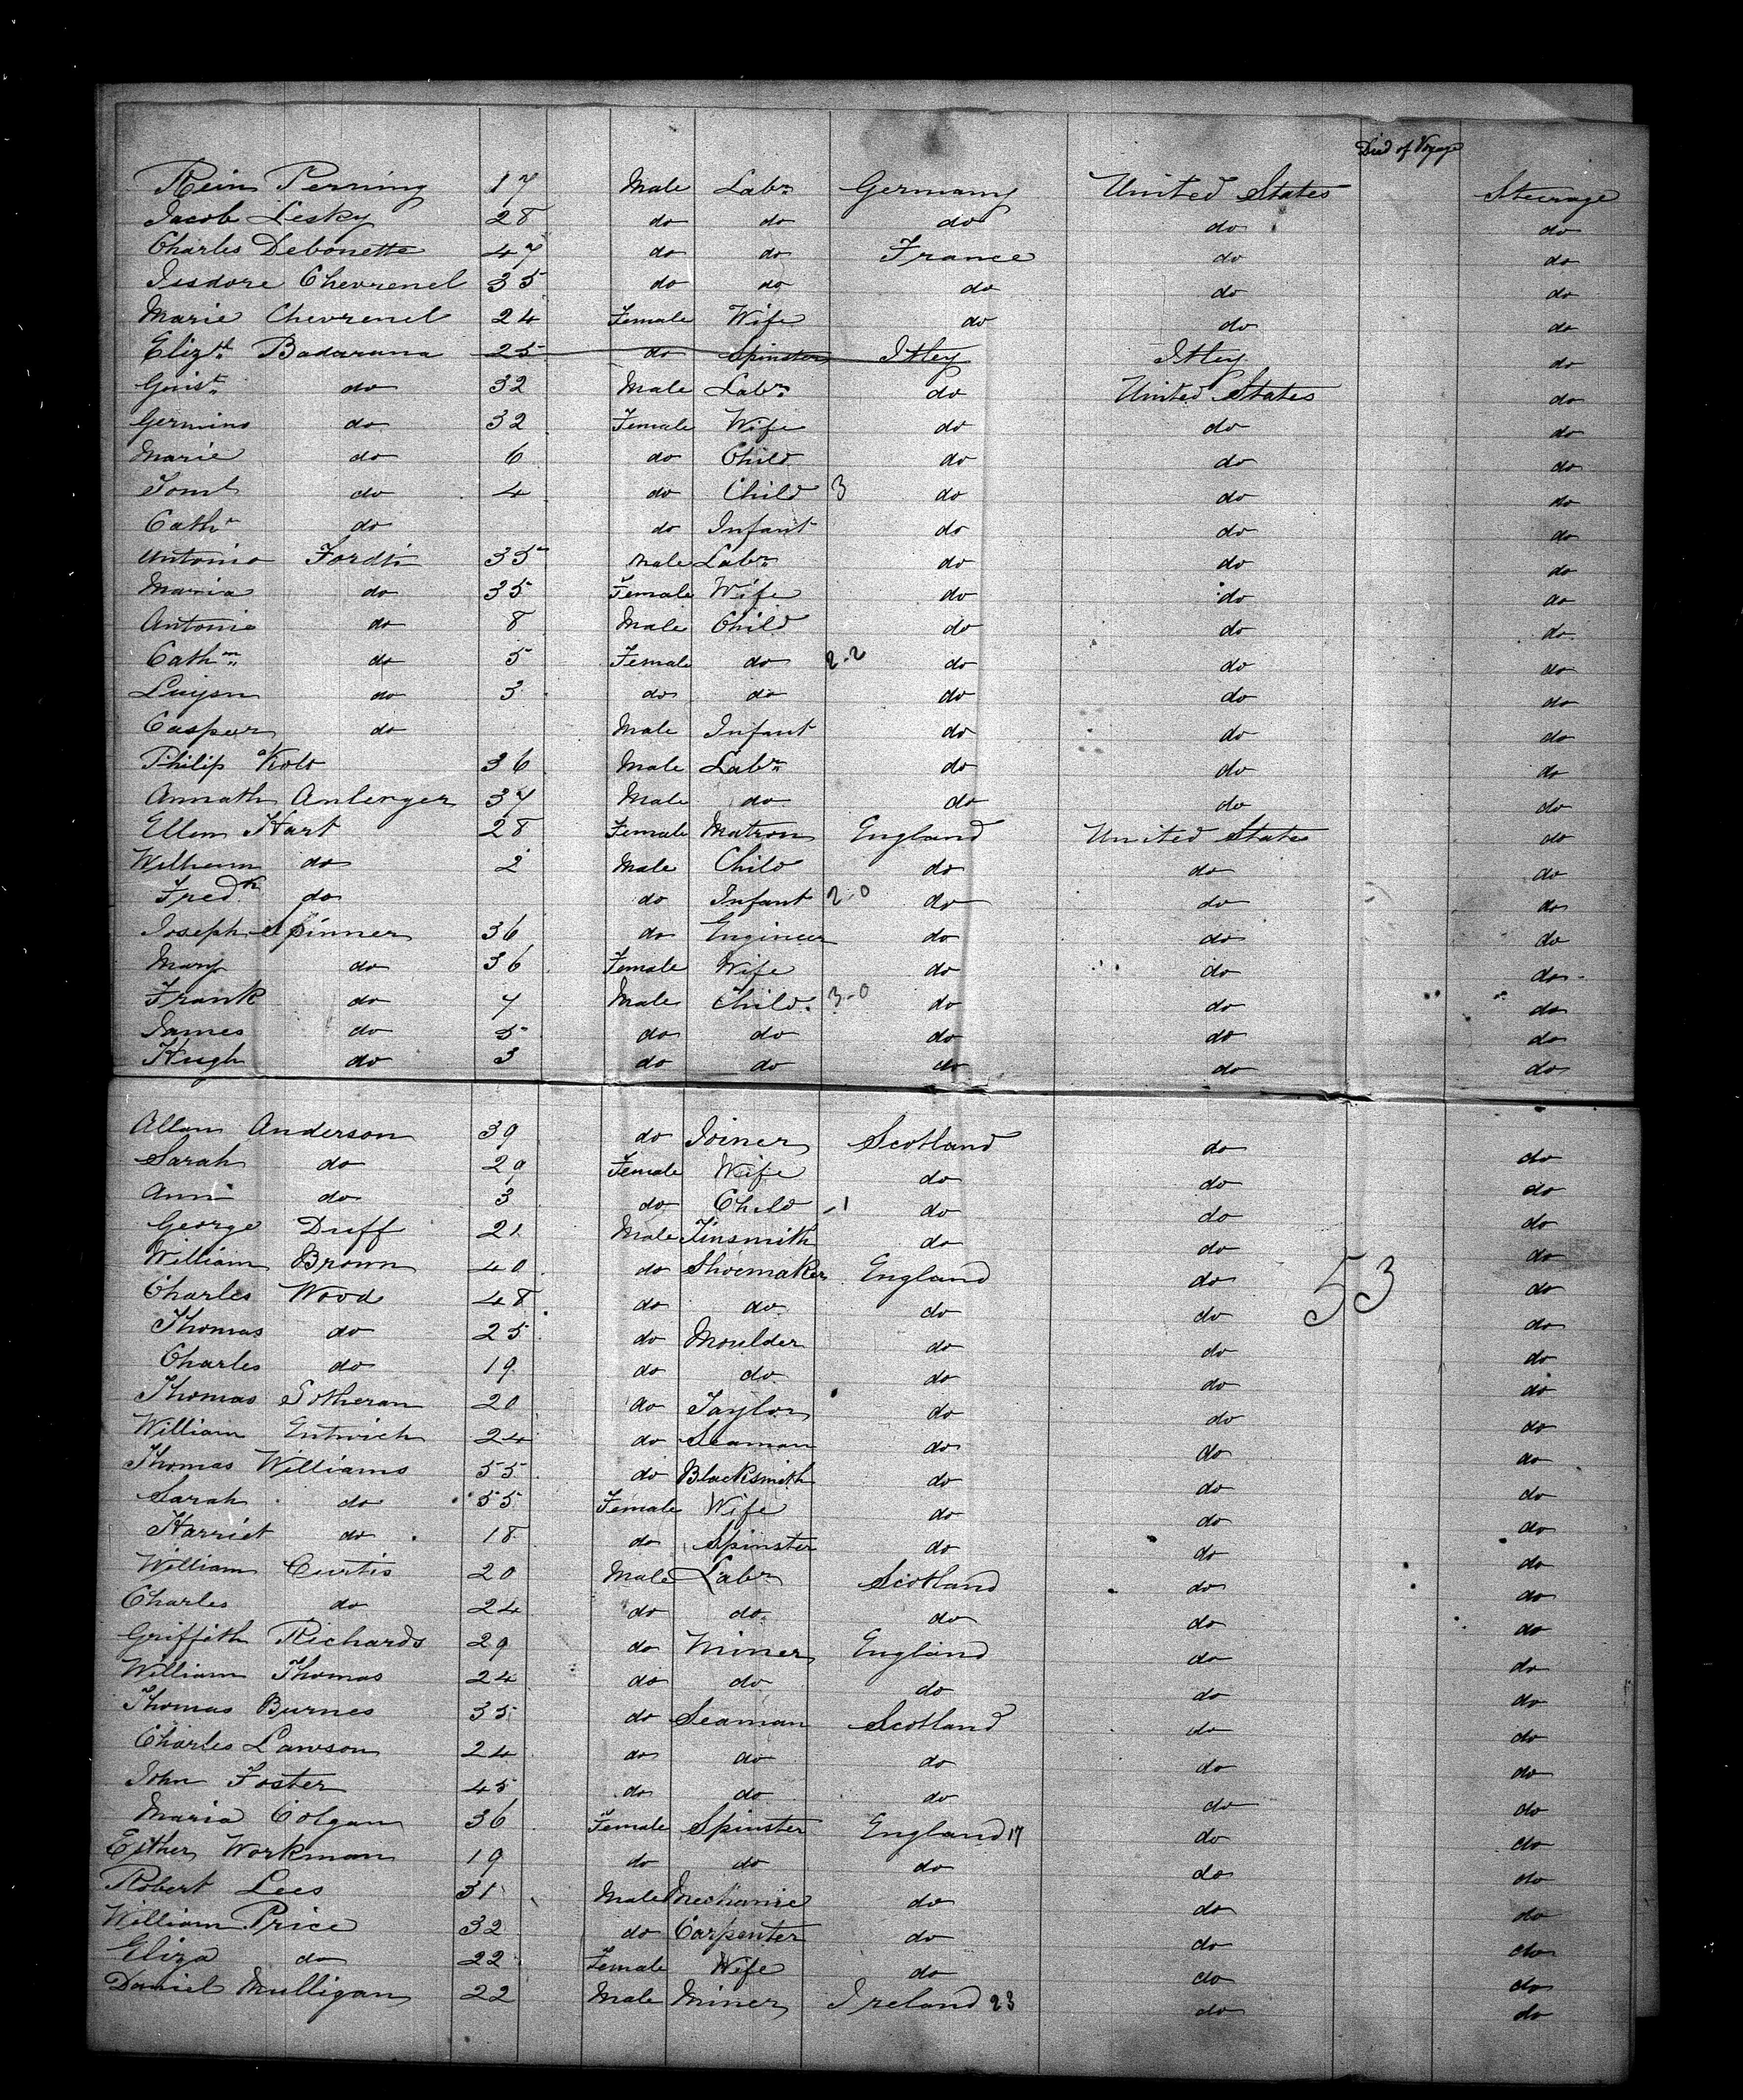 Died of Voyage
Rein Perring 17 Male Labr Germany United States Steerage
Jacob Lesky 28 do do do do do
Charles Debonette 47 do do France do do
Issdore Chevrenel 35 do do do do do
Marie Chevrenel 24 Female Wife do do do
Elizth Badarana 25 do Spinster Itley Itley do
do 32 Male Labr do United States do
Germino do 32 Female Wife do do do
Marie do 6 do Child do do do
do 4 do Child 3 do do do
Cathr do do Infant do do do
Antonio Fordti 35 Male Labr do do do
Maria do 35 Female Wife do do do
Antonio do 8 Male Child do do do
Cathn do 5 Female do 2-2 do do do
Luysn do 3 do do do do do
Casper do Male Infant do do do
Philip Kolo 36 Male Labr do do do
Annath Anlerger 37 Male do do do do
Ellen Hart 28 Female Matron England United States do
William do 2 Male Child do do do
Fredk do do Infant 2-0 do do do
Joseph Spinner 36 do Engineer do do do
Mary do 36 Female Wife do do do
Frank do 7 Male Child 3-0 do do do
James do 5 do do do do do
Hugh do 3 do do do do do
Allan Anderson 39 do Joiner Scotland do do
Sarah do 29 Female Wife do do do
Ann do 3 do Child -1 do do do
George Duff 21 Male Tinsmith do do do
William Brown 40 do Shoemaker England do 53 do
Charles Wood 48 do do do do do
Thomas do 25 do Moulder do do do
Charles do 19 do do do do do
Thomas Sotheran 20 do Taylor do do do
William Entwich 24 do Seaman do do do
Thomas Williams 55 do Blacksmith do do do
Sarah do 55 Female Wife do do do
Harriet do 18 do Spinster do do do
William Curtis 20 Male Labr Scotland do do
Charles do 24 do do do do do
Griffith Richards 29 do Miner England do do
William Thomas 24 do do do do do
Thomas Burnes 35 do Seaman Scotland do do
Charles Lawson 24 do do do do do
John Foster 45 do do do do do
Maria Colgan 36 Female Spinster England 17 do do
Esther Workman 19 do do do do do
Robert Lees 31 Male Mechanic do do do
William Price 32 do Carpenter do do do
Eliza do 22 Female Wife do do do
Daniel Mulligan 22 Male Miner Ireland 23 do do